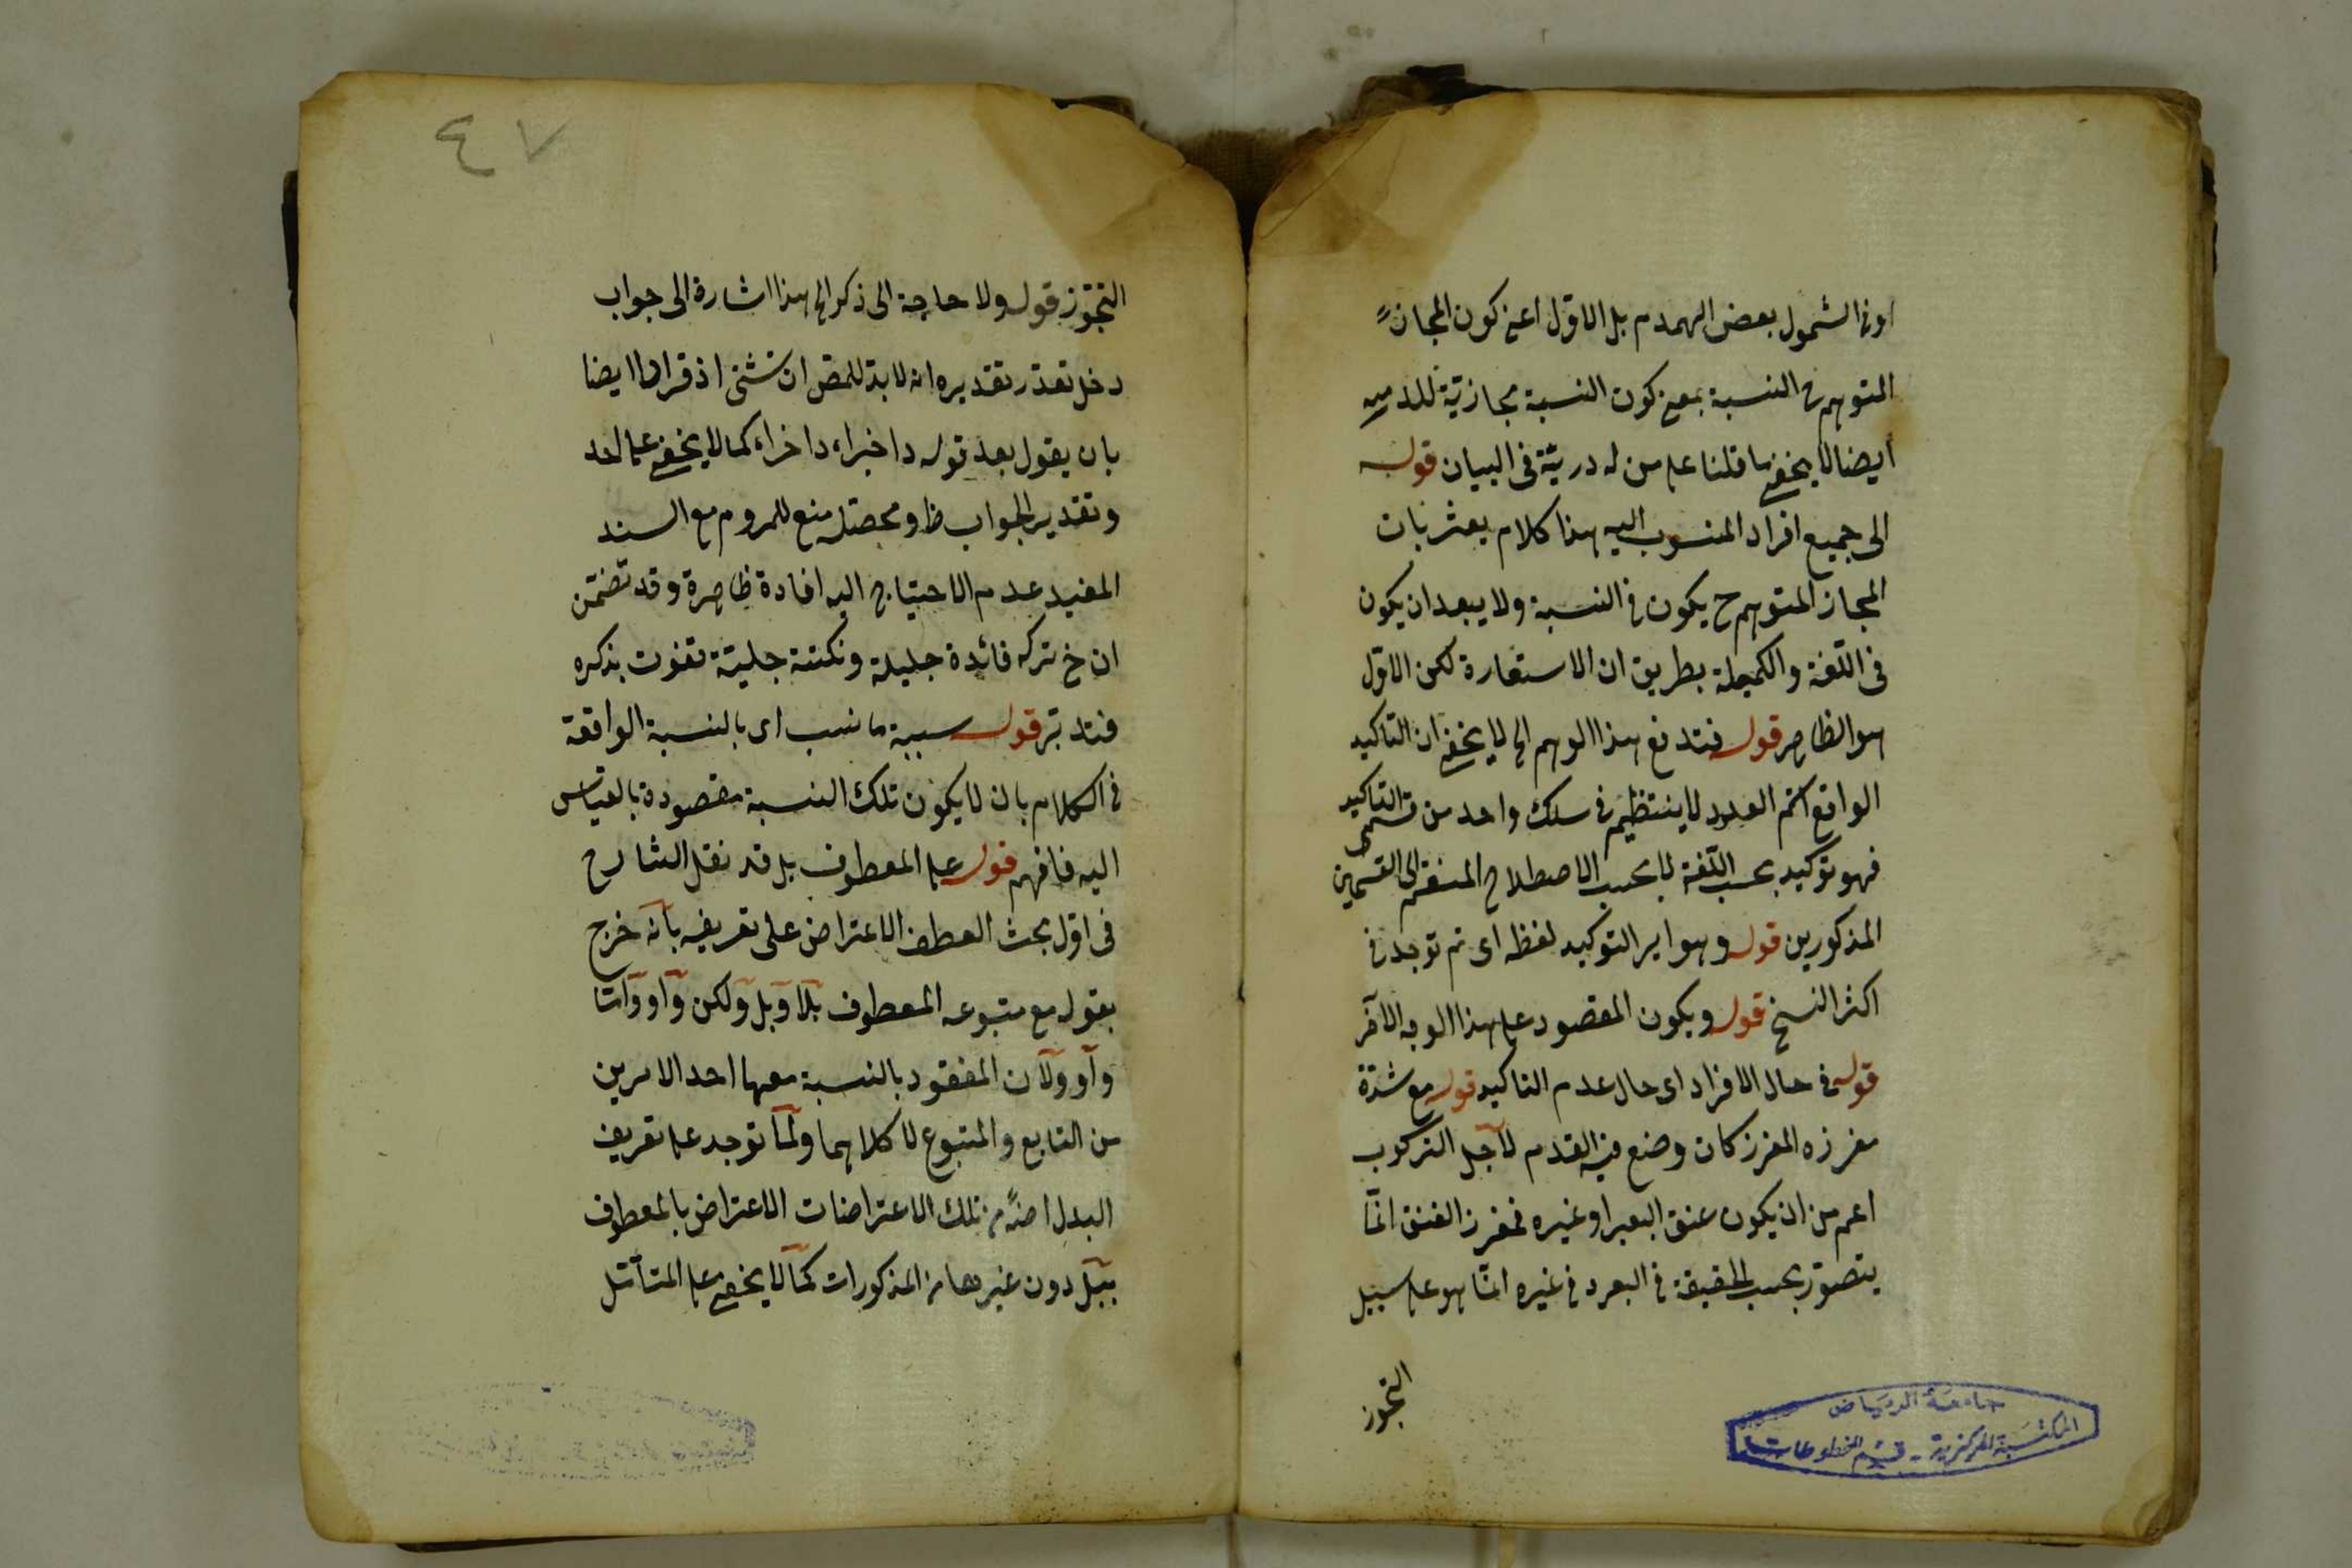 او في الشمول بعض الهمدم بل الاول اعني كون المجاز
المتوهم في النسبة بمعنى كون النسبة مجازية
ايضا لا يخفى ما قلنا على من له دربة في البيان قوله
الى جميع افراد المنسوب اليه هذا كلام يعثر بان
المجاز المتوهم ح يكون في النسبة ولا يبعد ان يكون
في اللغة والكميلة بطريق ان الاستعارة لكن الاول
هو الظاهر قوله فتدفع هذا الوهم الخ لا يخفى ان التاكيد
الواقع العدد لا ينتظم في سلك واحد من قسمى التاكيد
فهو توكيد بحسب اللغة لا بحسب الاصطلاح المنقسم الى القسمين
المذكورين قوله وهو اير التوكيد لفظه اى توجد في
اكثر النسخ قوله ويكون المقصود على هذا الوجه الآخر
قوله في حال الافراد اى حال عدم التاكيد قوله مع شدة
مغرزه المغرز كان وضع فيه القدم لاجل الركوب
اعم من ان يكون عنق البعير او غيره فمغرز العنق انما
يتصور بحسب الحقيقة في البعر د في غيره انما هو على سبيل
التجوز
جامعة الرياض
المكتبة المركزية - قسم المخطوطات
٤٧
التجوز قوله ولا حاجة الى ذكر الخ هذا اشارة الى جواب
دخل تقدر تقديره انه لا بد للمص ان اذ قرا ايضا
بان يقول بعد قوله داخبراء داخراء كما لا يخفى على احد
وتقدير الجواب ظ ومحصله منع للمروم مع السند
المفيد عدم الاحتياج اليه افادة ظاهرة وقد تضمن
ان ح تركه فائدة جليلة ونكتة جلية تفوت بذكره
فتدبر قوله سببية ما نسب اى بالنسبة الواقعة
في الكلام بان لا يكون تلك النسبة مقصودة بالقياس
اليه فافهم قوله على المعطوف بل قد نقل الشارح
فى اول بحث العطف الاعتراض على تعريفه بانه خرج
بقوله مع متبوعه المعطوف بلا وبل ولكن وأو وأما
وأو ولأن المفقود بالنسبة معها احد الامرين
من التابع والمتبوع لا كلاهما ولما توجد على تعريف
البدل من تلك الاعتراضات الاعتراض بالمعطوف
ببل دون غيرها من المذكورات كما لا يخفى على المتأمل